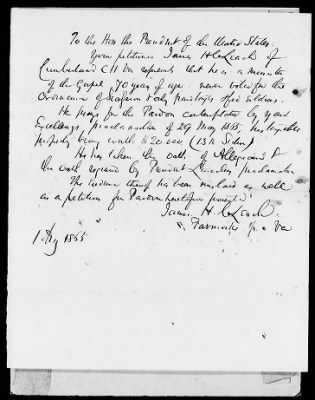 To His Hon the President of the United States.
Your petitioner James H C Leach of
Cumberland C H Va represents that he is a minister
of the Gospel, 70 years of age never voted for the
Ordinance of Secession & only
He prays for the Pardon contemplated by your
Excellency's proclamation of 29 May 1865, his taxable
property being worth $20.000 (13th Section)
He has taken the oath of Allegiance &
the oath required by President Lincoln's proclamation
The evidence thereof has been mislaid as well
as a petition for Pardon heretofore presented
James H C Leach.
Farmville P.O Va
1 Aug 1865